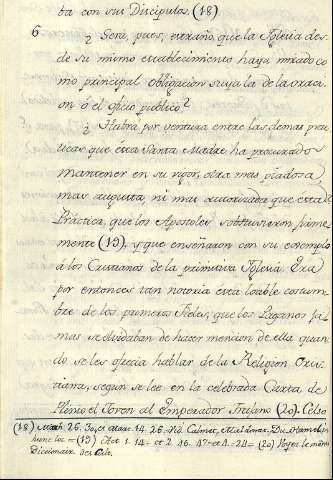 ba con sus Discipulos. (18)
6
¿ Será, pues, extraño, que la Yglesia des-
de su mismo establecimiento haya mirado co
mo principal obligacion suya la de la oraci-
on ó el oficio público?
¿ Habrá por ventura entre las demas prac-
ticas que esta Santa Madre ha procurado
mantener en su vigor, otra mas piadosa
mas augusta ni mas autorizada que esta
Práctica, que los Apostoles sobstuvieron firme-
mente (19). y que enseñaron con su exemplo
á los Cristianos de la primitiva Yglesia. Era
por entonces tan notoria esta loable costum-
bre de los primeros Fieles, que los Paganos ja-
mas se olvidaban de hacer mencion de ella quan-
do se les ofrecia hablar de la Religion Cris-
tiana, segun se lee en la celebrada Carta de
Plinio el Joven al Emperador Trajano (20). Celso
(18) Math. 26. 30. et Marc. 14. 26. Calmet, Maldonat. Du-Hamel in
hunc loc = (19) Act. 1. 14. et 2. 46. 47. et 4. 24 = (20)
Diccionario